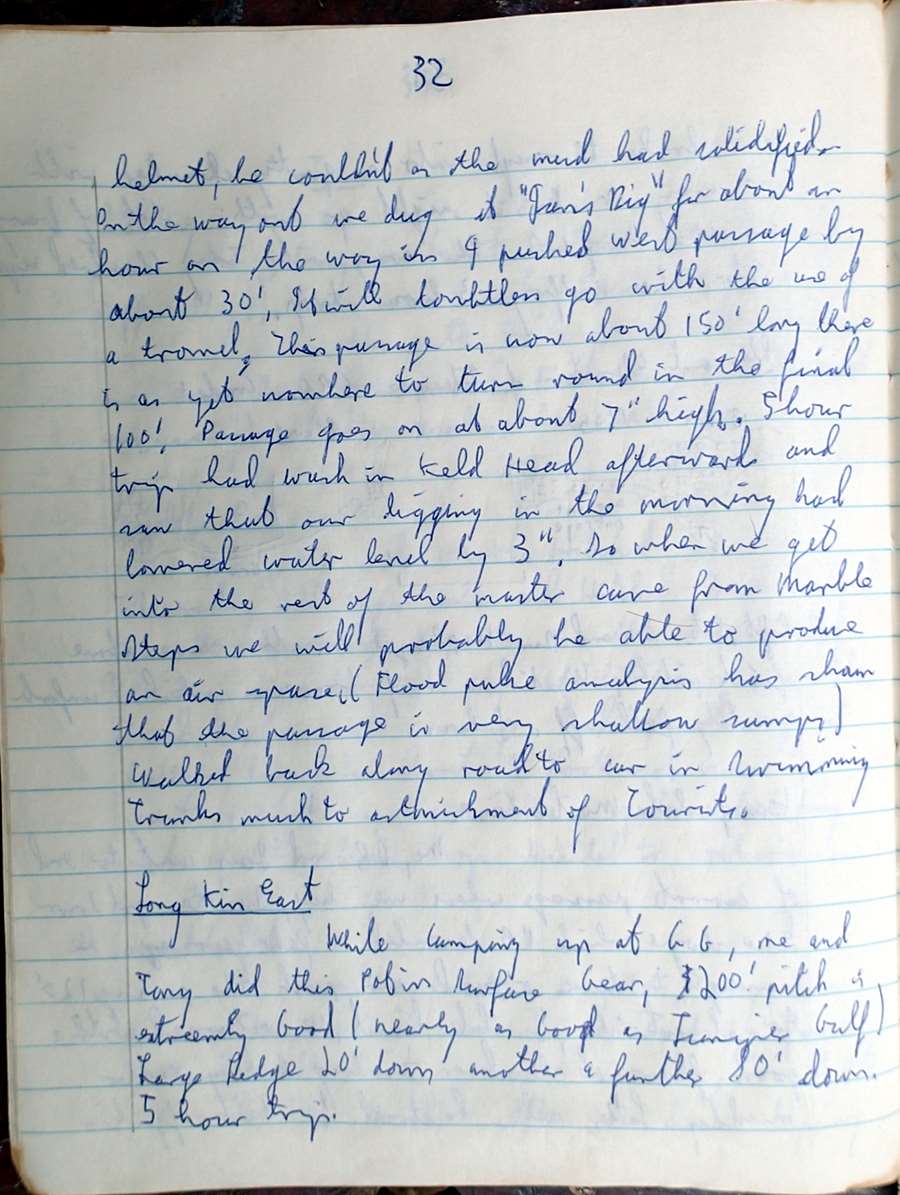 32
helmet, he couldn't as the mud had solidified.
On the way out we dug at "Ian's Dig" for about an
hour on the way in I pushed west passage by
about 30', It will doubtless go with the use of
a trowel, This passage is now about 150' long there
is as yet nowhere to turn round in the final
100'. Passage goes on at about 7" high. 5 hour
trip had wash in Keld Head afterwards and
saw that our digging in the morning had
lowered water level by 3". So when we get
into the rest of the master cave from Marble
Steps we will probably be able to produce
an air space. (Flood pulse analysis has shown
that the passage is very shallow sumps)
Walked back along road to car in swimming
Trunks much to astonishment of Tourists.
Long Kin East
While Camping up at G G, me and
Tony did this Pot in surface Gear, 200' pitch is
extreemly Good (nearly as Good as Juniper Gulf)
Large Ledge 20' down another a further 80' down.
5 hour trip.